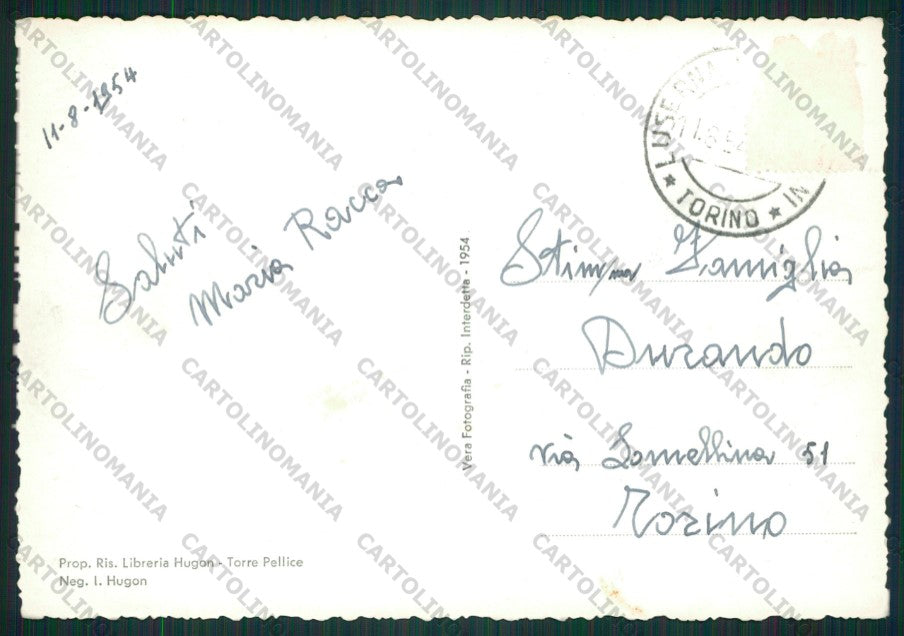 11-8-1954
Saluti
Maria Rocca
Stim/ma Famiglia
Durando
via Lomellina 51
Torino
Vera Fotografia - Rip. Interdetta - 1954
Prop. Ris. Libreria Hugon - Torre Pellice
Neg. I. Hugon
LUSERNA
11.8.54
★ TORINO ★
CARTOLINOMANIA